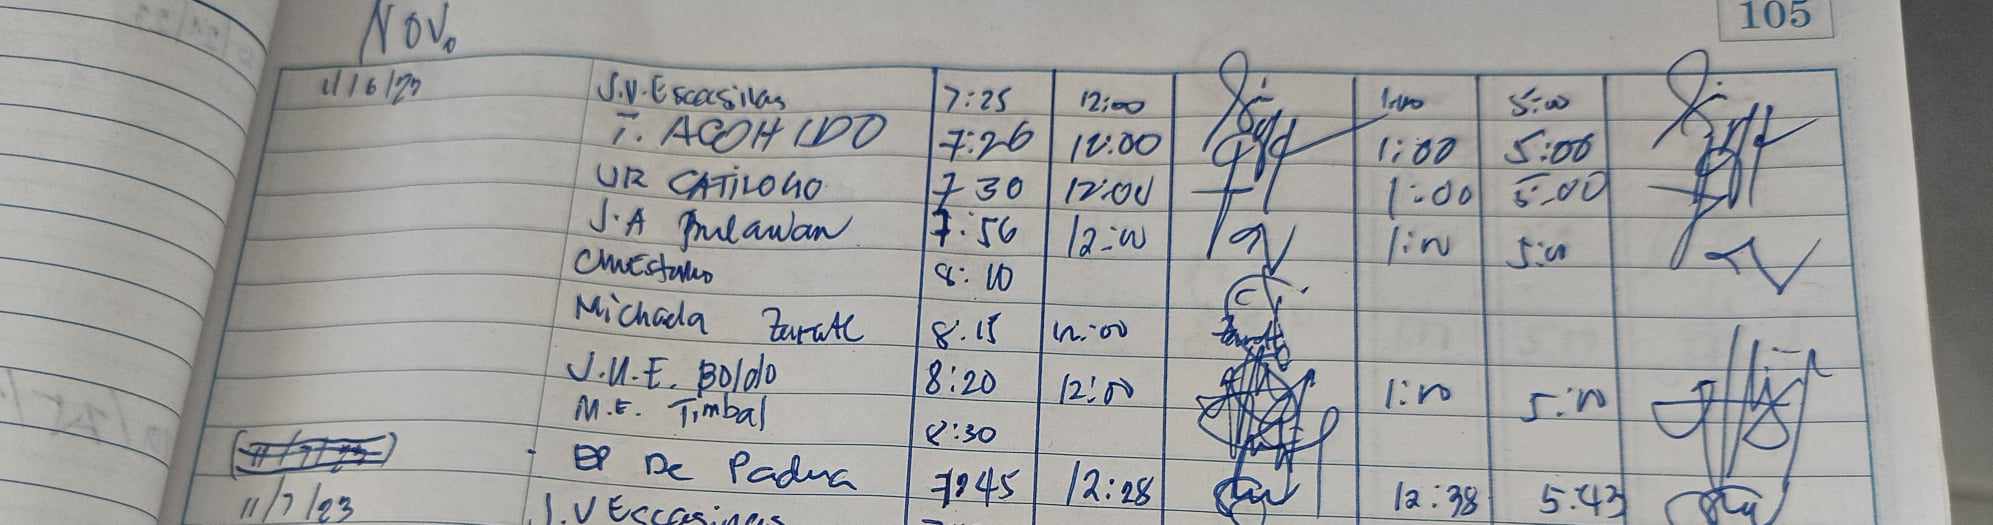 Nov. 105
11/6/23 J.V. Escasinas 7:25 12:00 1:00 5:00
T. ACOHIDO 7:26 12:00 1:00 5:00
7 30 12:00 1:00 5:00
J.A Bulawan 7:56 12:00 1:00 5:00
8:10
Michada Zarate 8:15 12:00 Zarate
Boldo 8:20 12:00 1:00 5:00
M.E. Timbal 8:30
11/7/23 EP De Padua 7:45 12:28 12:38 5:43
11/7/23 J.V Escasinas